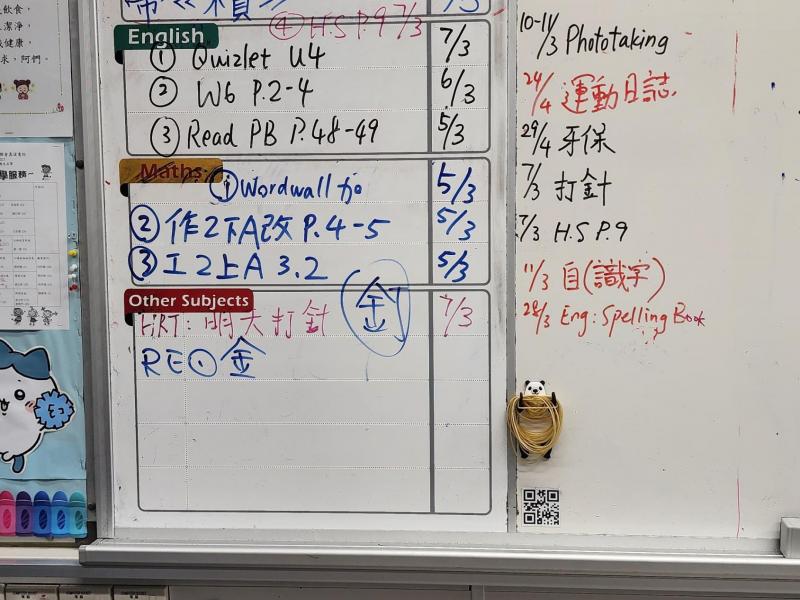 帶《積》
④ H.S P.9 7/3
English
① Quizlet U4 7/3
② W6 P.2-4 6/3
③ Read PB P.48-49 5/3
Maths
① Wordwall 5/3
② 作2下A改 P.4-5 5/3
③ 工2上A 3.2 5/3
Other Subjects
HRT: 明天打針 針 7/3
RE ① 金
10-11/3 Phototaking
24/4 運動日誌
29/4 牙保
7/3 打針
7/3 H.S P.9
11/3 自(識字)
28/3 Eng: Spelling Book
飲食，
潔淨，
健康，
求，阿們。
學服務~